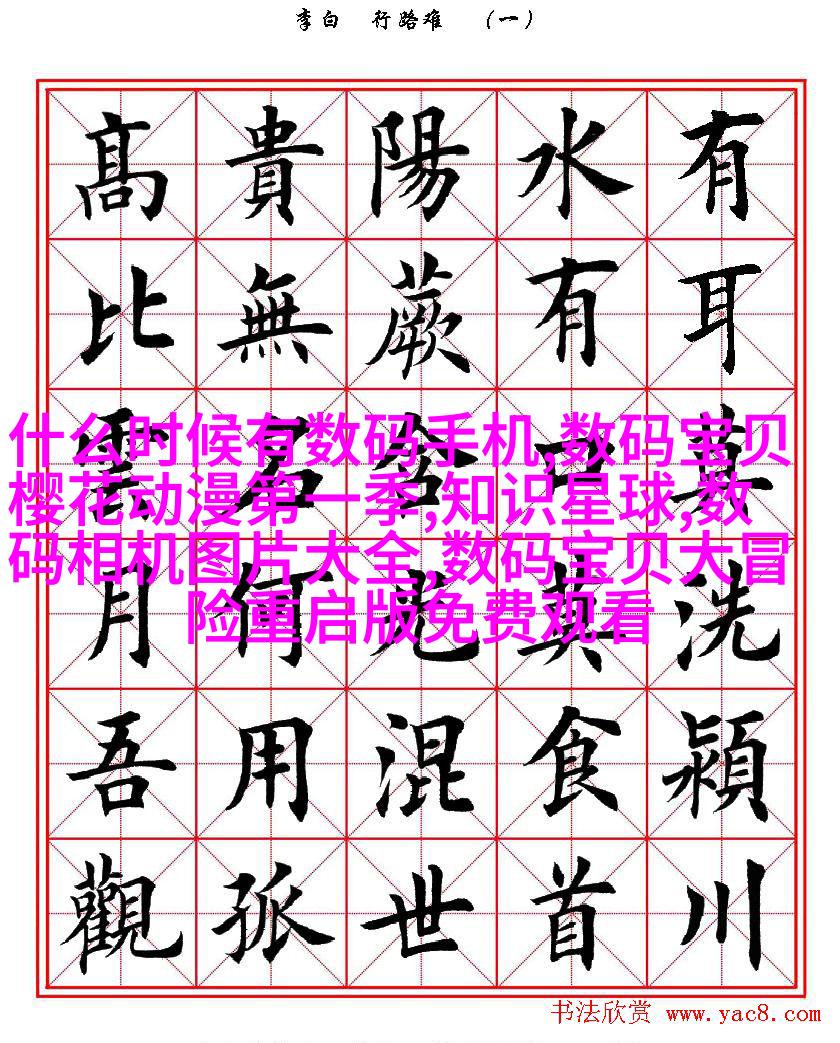 李白 行路难 （一）
有耳莫洗潁川
水有口莫食首
陽蕨含光混世
貴無名何用孤
髙比雲月吾觀
什么时候有数码手机,数码宝贝
樱花动漫第一季,知识星球,数
码相机图片大全,数码宝贝大冒
险重启版免费观看
书法欣赏 www.yac8.com